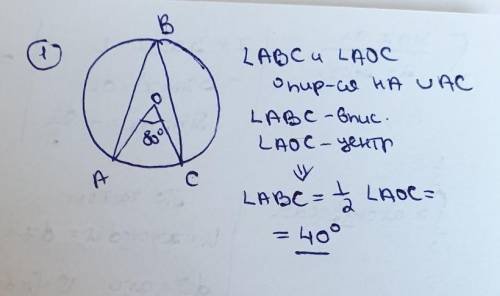 1
B
O
80°
A
C
∠ABC и ∠AOC
опир-ся на ∪AC
∠ABC - впис.
∠AOC - центр
⇓
∠ABC = 1/2 ∠AOC =
= 40°